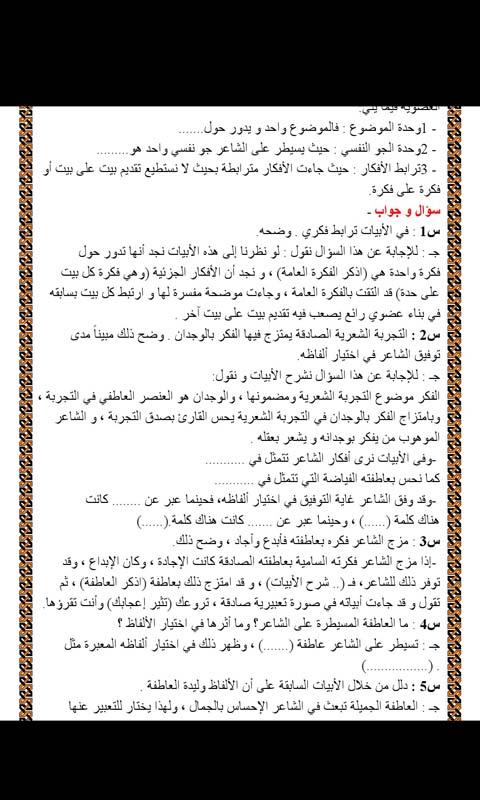 العضوية فيما يلي:
- 1وحدة الموضوع : فالموضوع واحد و يدور حول.......
- 2وحدة الجو النفسي : حيث يسيطر على الشاعر جو نفسي واحد هو..........
- 3ترابط الأفكار : حيث جاءت الأفكار مترابطة بحيث لا نستطيع تقديم بيت على بيت أو
فكرة على فكرة.
سؤال و جواب -
س1 : في الأبيات ترابط فكري . وضحه.
جـ : للإجابة عن هذا السؤال نقول : لو نظرنا إلى هذه الأبيات نجد أنها تدور حول
فكرة واحدة هي (اذكر الفكرة العامة) ، و نجد أن الأفكار الجزئية (وهي فكرة كل بيت
على حدة) قد التقت بالفكرة العامة ، وجاءت موضحة مفسرة لها و ارتبط كل بيت بسابقه
في بناء عضوي رائع يصعب فيه تقديم بيت على بيت آخر .
س2 : التجربة الشعرية الصادقة يمتزج فيها الفكر بالوجدان . وضح ذلك مبيناً مدى
توفيق الشاعر في اختيار ألفاظه.
جـ : للإجابة عن هذا السؤال نشرح الأبيات و نقول:
الفكر موضوع التجربة الشعرية ومضمونها ، والوجدان هو العنصر العاطفي في التجربة ،
وبامتزاج الفكر بالوجدان في التجربة الشعرية يحس القارئ بصدق التجربة ، و الشاعر
الموهوب من يفكر بوجدانه و يشعر بعقله .
-وفى الأبيات نرى أفكار الشاعر تتمثل في ...........
كما نحس بعاطفته الفياضة التي تتمثل في ...........
-وقد وفق الشاعر غاية التوفيق في اختيار ألفاظه، فحينما عبر عن ........ كانت
هناك كلمة (......) ، وحينما عبر عن ....... كانت هناك كلمة.(......)
س3 : مزج الشاعر فكره بعاطفته فأبدع وأجاد ، وضح ذلك.
-إذا مزج الشاعر فكرته السامية بعاطفته الصادقة كانت الإجادة ، وكان الإبداع ، وقد
توفر ذلك للشاعر، فـ (.. شرح الأبيات) ، و قد امتزج ذلك بعاطفة (اذكر العاطفة) ، ثم
تقول و قد جاءت أبياته في صورة تعبيرية صادقة ، تروعك (تثير إعجابك) وأنت تقرؤها.
س4 : ما العاطفة المسيطرة على الشاعر؟ وما أثرها في اختيار الألفاظ ؟
جـ : تسيطر على الشاعر عاطفة (.......) ، وظهر ذلك في اختيار ألفاظه المعبرة مثل
. (................)
س5 : دلل من خلال الأبيات السابقة على أن الألفاظ وليدة العاطفة .
جـ : العاطفة الجميلة تبعث في الشاعر الإحساس بالجمال ، ولهذا يختار للتعبير عنها